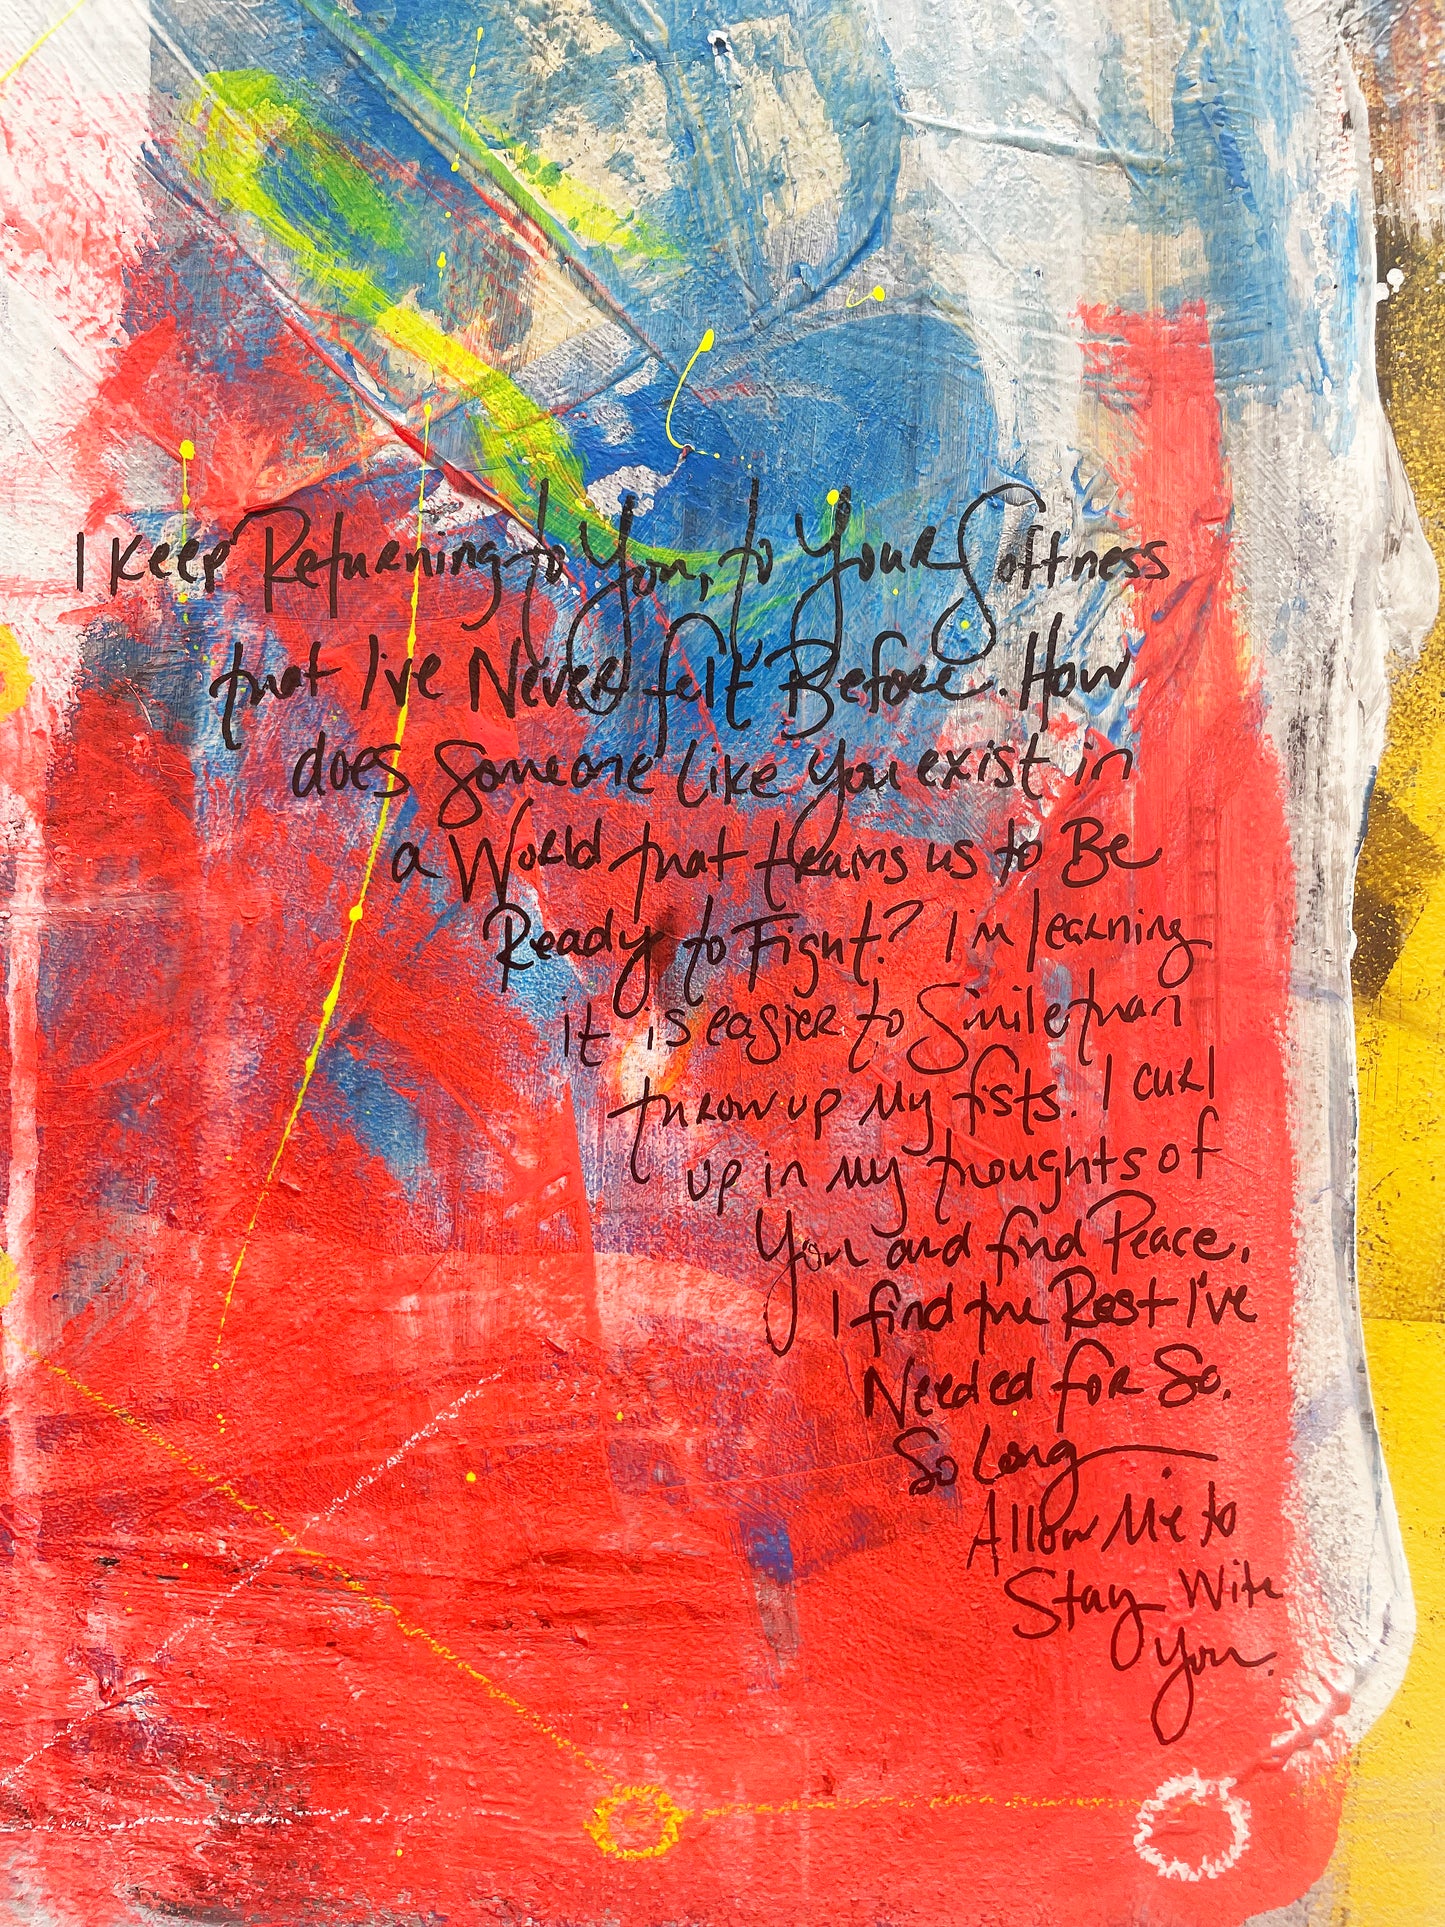 I keep Returning to You, to Your Softness
that I've Never felt Before. How
does Someone like You exist in
a World that trains us to Be
Ready to Fight? I'm learning
it is easier to Smile than
throw up My fists. I curl
up in my thoughts of
You and find Peace.
I find the Rest I've
Needed for So.
So Long
Allow Me to
Stay With
You.